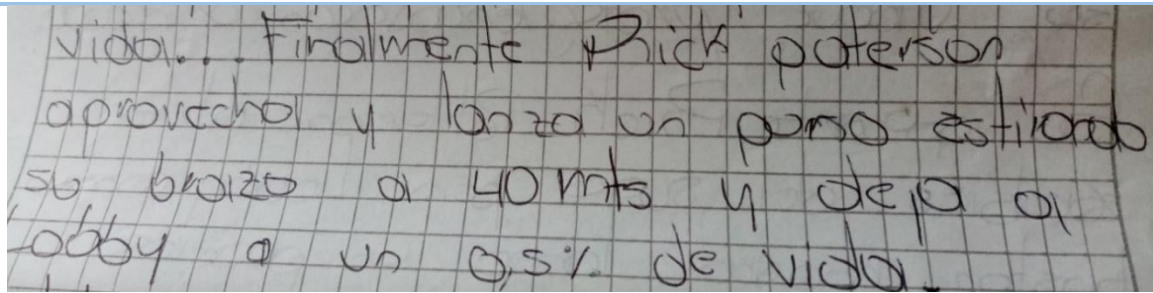 vida... Finalmente Phick paterson
aprovecha y lanza un puño estirando
su brazo a 40 mts y deja a
Lobby a un 0,5% de vida.